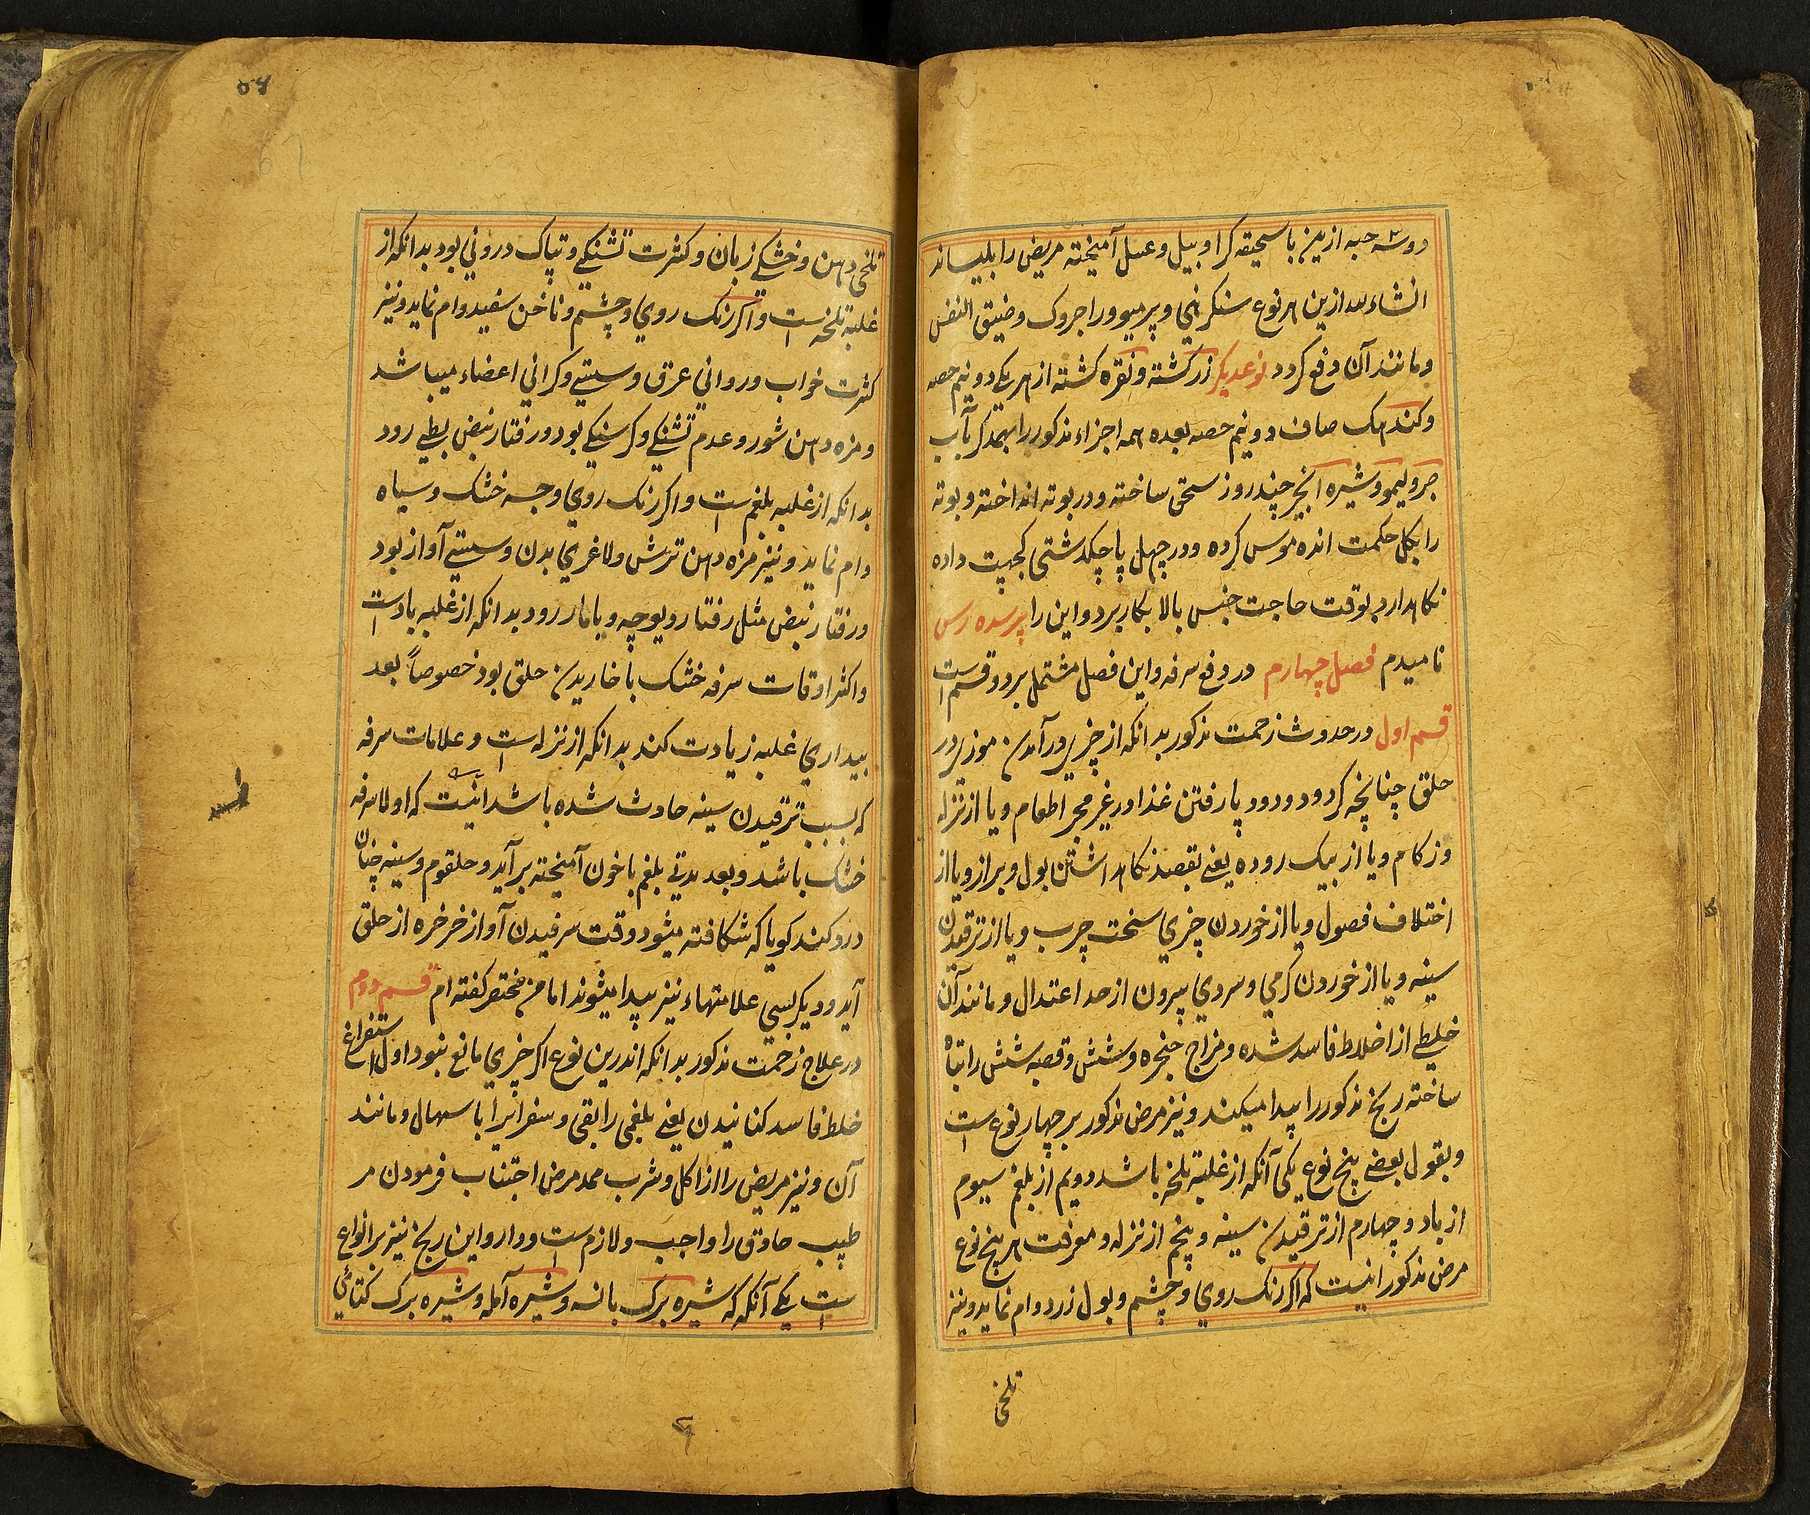 دوسه حبه ازین با سحیقه کرا و پیل و عسل آمیخته مریض را بلیساند
انشاء الله ازین هر نوع سنکرهنی و پرمیو و راجروک و ضیق النفس
و مانند آن دفع کردد نوعدیکر زر کشته و نقره کشته از هر یکے دو نیم حصه
و کندهک صاف دو نیم حصه بعده همه اجزاء مذکور را بهمدکر بآب
و لیمو و شیره انجیر چند روز سحق ساخته و در بوته انداخته و بوته
را بکل حکمت اندهموس کرده و در چهل پاچکدشتی کجپت داده
نکاهدارد بوقت حاجت جنس بالا بکار برد و این را پرسده رس
نامیدم فصل چهارم در دفع سرفه و این فصل مشتمل بر دو قسم است
قسم اول در حدوث زحمت مذکور بدانکه از چیزی در آمدن موزی در
حلق چنانچه کرد و دود و یا رفتن غذا در غیر مجرا طعام و یا از نزله
و زکام و یا از بیک روده یعنے بقصد نکاهداشتن بول و براز و یا از
اختلاف فصول و یا از خوردن چیزی سخت چرب و یا از ترقیدن
سینه و یا از خوردن کرمي و سردي بیرون از حد اعتدال و مانند آن
خلطے از اخلاط فاسد شده و مزاج حنجره و شش و قصبه شش را تباه
ساخته رنج مذکور را پیدا میکند و نیز مرض مذکور بر چهار نوع است
و بقول بعضے پنج نوع یکی آنکه از غلبهٔ تلخه باشد دویم از بلغم سیوم
از باد و چهارم از ترقیدن سینه و پنجم از نزله و معرفت هر پنج نوع
مرض مذکور اینست که اکر رنک روي و چشم و بول زرد وام نماید و نیز
تلخی
تلخی دهن و خشکے زبان و کثرت تشنکے و تپاک درونی بود بدانکه از
غلبهٔ تلخه است و اکر رنک روي و چشم و ناخن سفید وام نماید و نیز
کثرت خواب و روانی عرق و سستے و کرانی اعضاء میباشد
و مزه دهن شور و عدم تشنکے و کرسنکے بود و رفتار نبض بطے رود
بدانکه از غلبه بلغم است و اکر رنک روي و جسه خشک و سیاه
وام نماید و نیز مزه دهن ترش و لاغري بدن و سستے آواز بود
و رفتار نبض مثل رفتار دیوچه و یا مار رود بدانکه از غلبه باد است
و اکثر اوقات سرفه خشک با خاریدن حلق بود خصوصاً بعد
بیداري غلبه زیادت کند بدانکه از نزله است و علامات سرفه
که بسبب ترقیدن سینه حادث شده باشد اینست که اولا سرفه
خشک باشد و بعد مدتے بلغم با خون آمیخته برآید و حلقوم و سینه چنان
درد کند کویا که شکافته میشود وقت سرفیدن آواز خرخره از حلق
آید و دیکر بسي علامتهاء نیز پیدا میشوند اما من مختصر کفته ام قسم دوم
در علاج زحمت مذکور بدانکه اندرین نوع اکر چیزي مانع نبود اول استفراغ
خلط فاسد کنانیدن یعنے بلغمی را بقی و سفرائیرا باسهال و مانند
آن و نیز مریض را از اکل و شرب ممد مرض اجتناب فرمودن مر
طبیب حاذق را واجب و لازم است و دارو این رنج نیز بر انواع
است یکے آنکه که شیره برک بانسه و شیره آمله و شیره برک کتائي